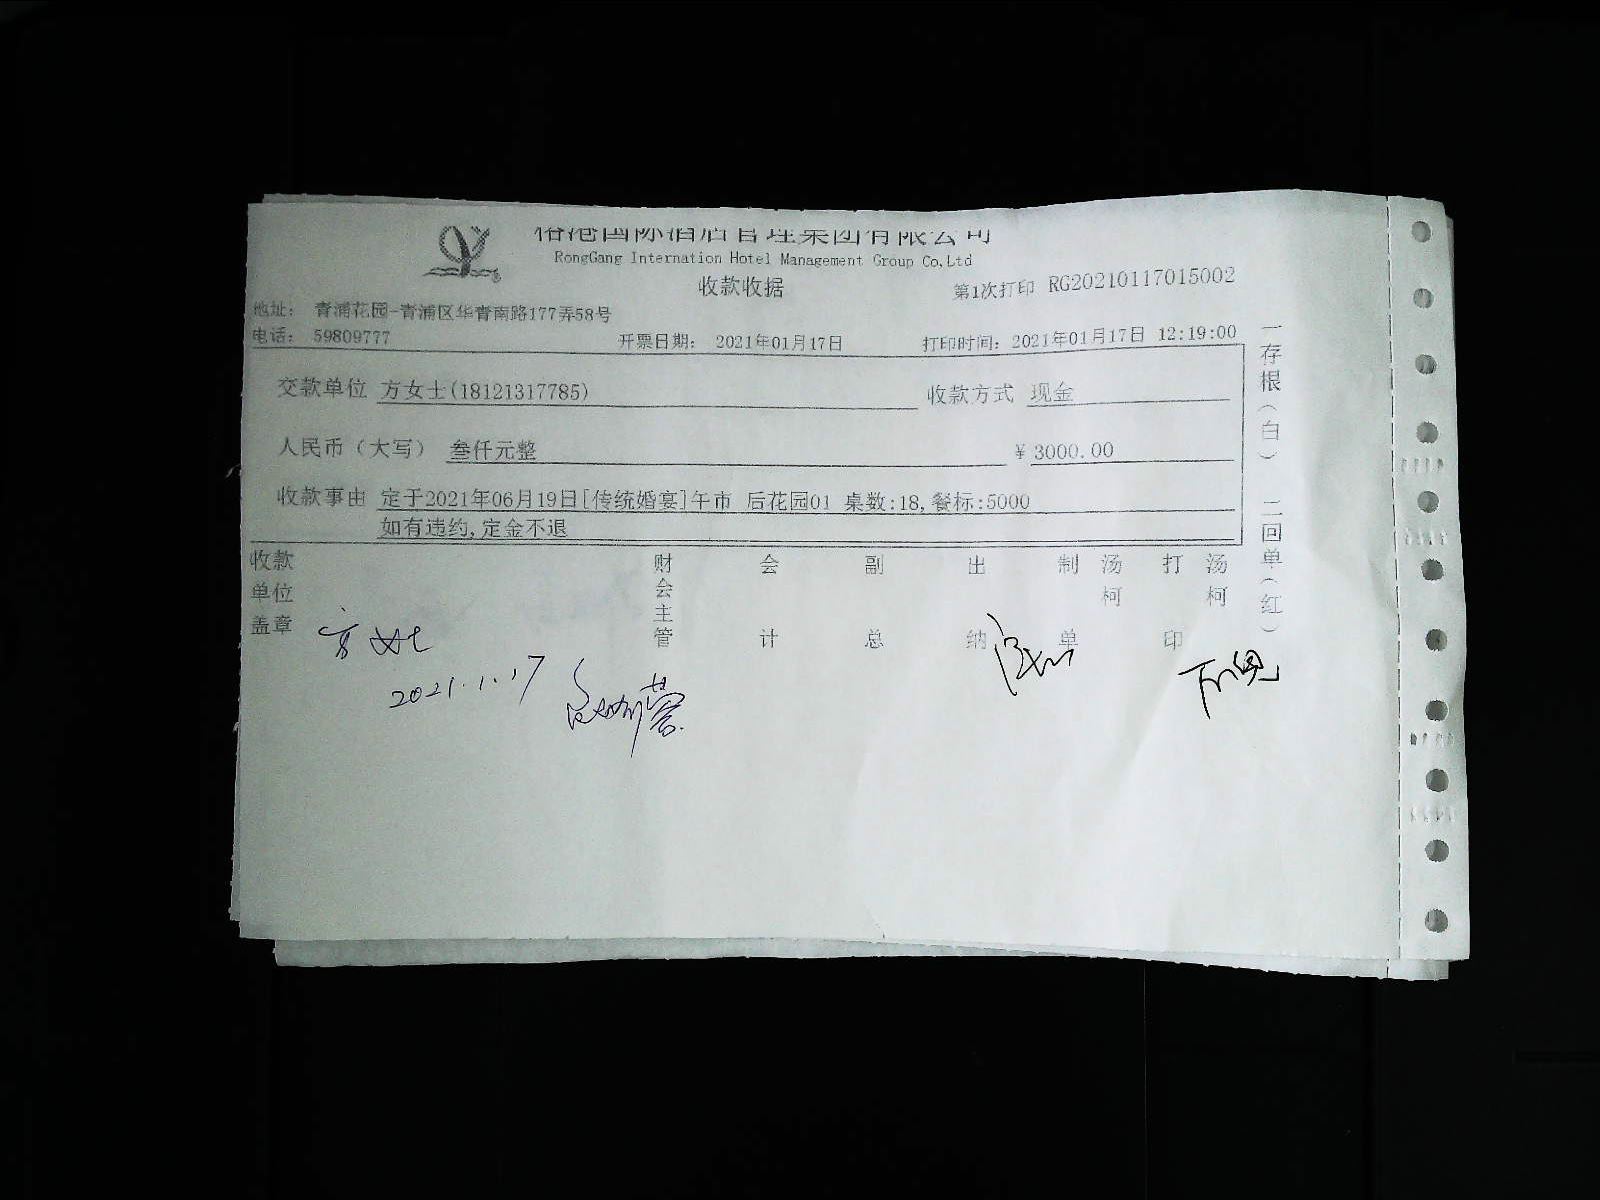 国际酒店管理集团有限公司
RongGang Internation Hotel Management Group Co,Ltd
收款收据
第1次打印 RG20210117015002
地址： 青浦花园-青浦区华青南路177弄58号
电话： 59809777 开票日期： 2021年01月17日 打印时间：2021年01月17日 12:19:00
交款单位 方女士(18121317785) 收款方式 现金
人民币（大写） 叁仟元整 ￥3000.00
收款事由 定于2021年06月19日[传统婚宴]午市 后花园01 桌数:18,餐标:5000
如有违约,定金不退
收款单位盖章 财会主管 会计 副总 出纳 制单 汤柯 打印 汤柯
一存根（白） 二回单（红）
方女士
2021.1.17